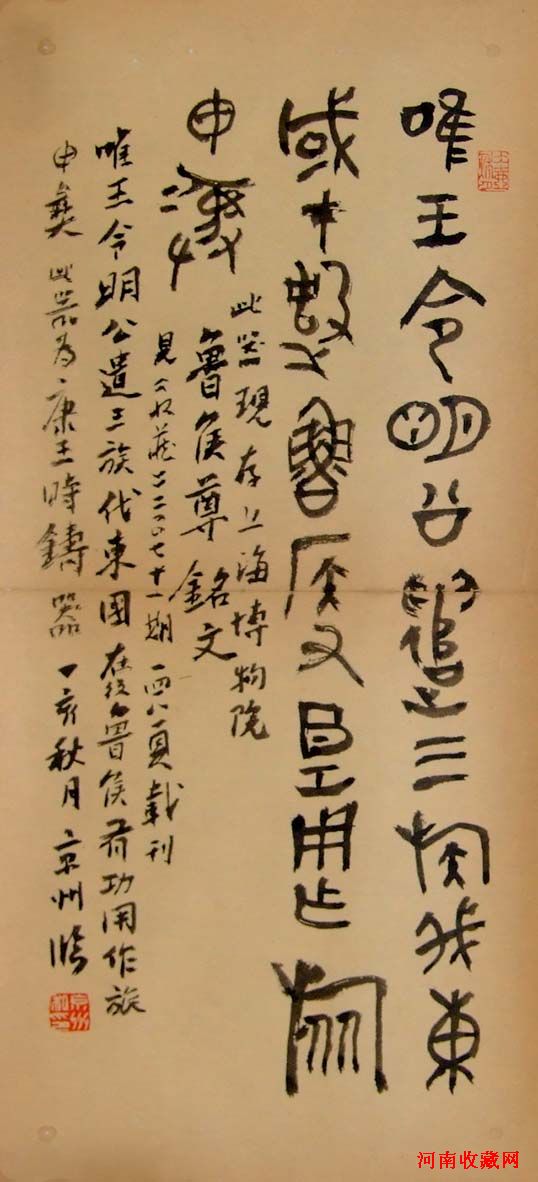 唯王令明公遣三族伐東
或才魯侯又工用乍旅
申彝
此器現存上海博物院
魯侯尊銘文
見收藏二〇〇七十一期 一四八頁載刊
唯王令明公遣三族伐東國在魯侯有功用作旅
申彝 此器為康王時鑄器 丁亥秋月 京州臨
河南收藏网